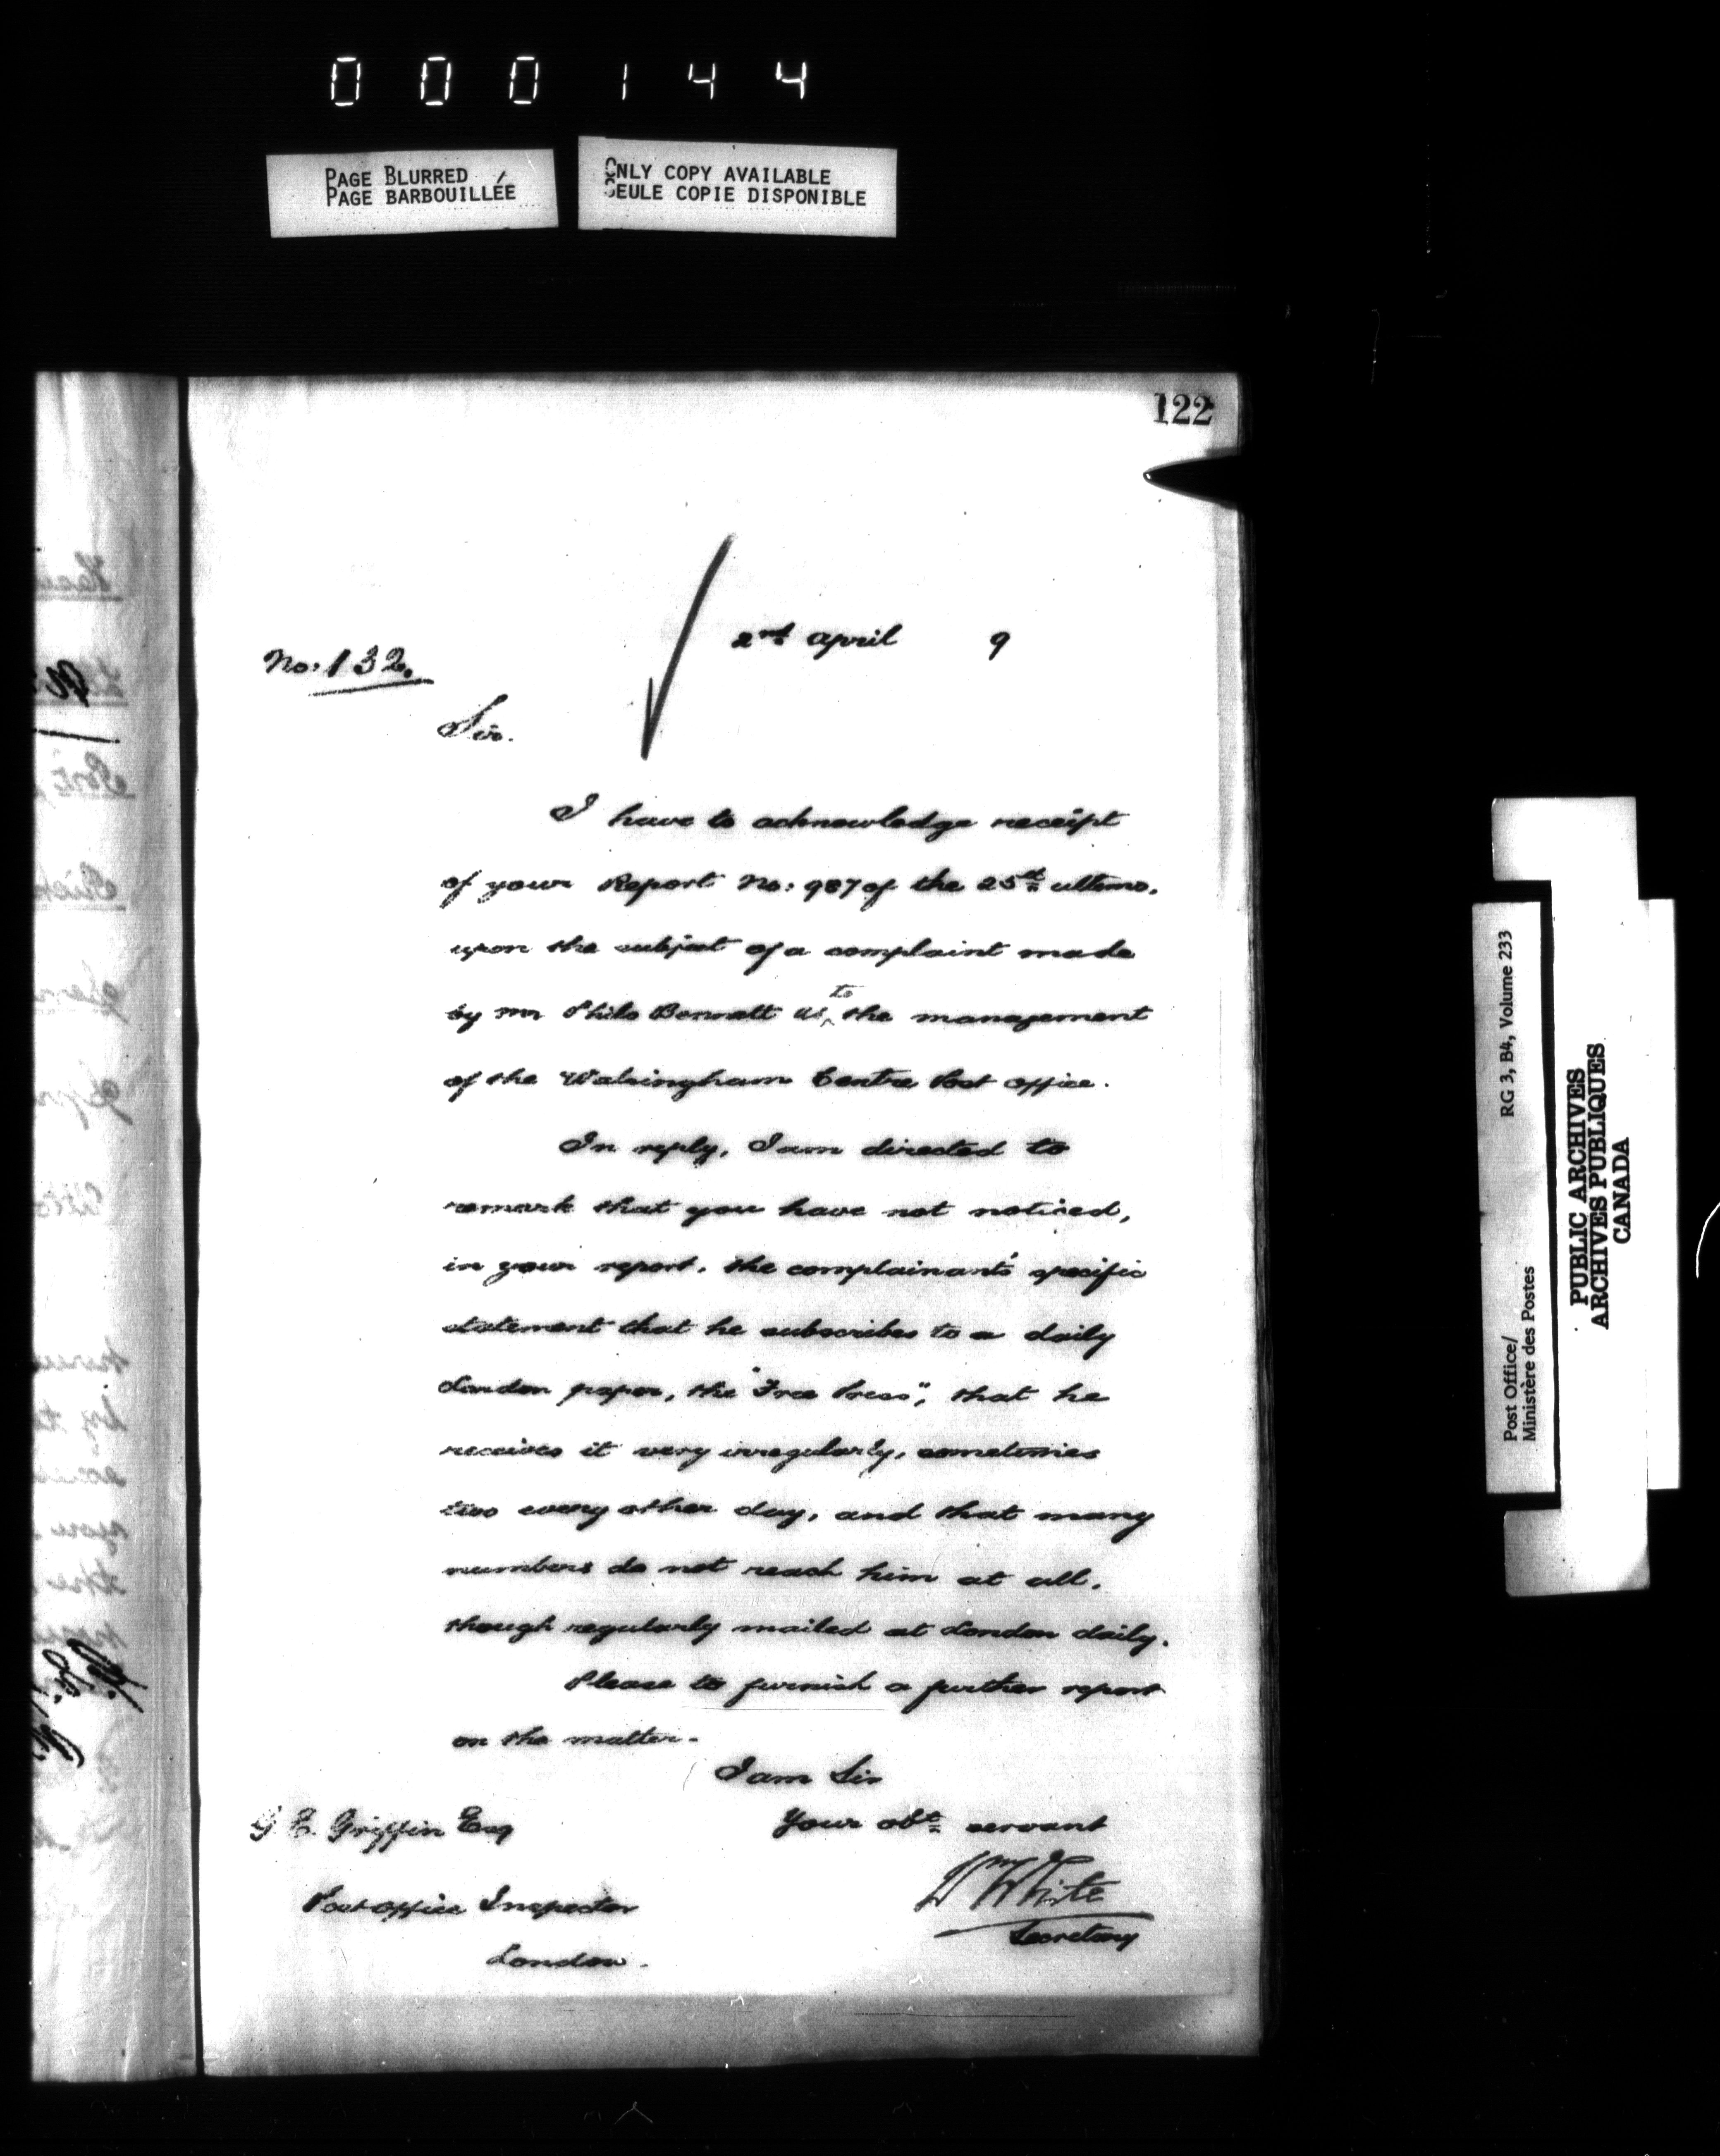 000144
PAGE BLURRED
PAGE BARBOUILLÉE
ONLY COPY AVAILABLE
SEULE COPIE DISPONIBLE
122
2nd April 9
No: 132.
Sir.
I have to acknowledge receipt
of your Report No: 987 of the 25th ultimo.
upon the subject of a complaint made
by Mr Philo Bennett as to the management
of the Walsingham Centre Post Office.
In reply, I am directed to
remark that you have not noticed,
in your report, the complainant's specific
statement that he subscribes to a daily
London paper, the "Free Press", that he
receives it very irregularly, sometimes
two every other day, and that many
numbers do not reach him at all,
though regularly mailed at London daily.
Please to furnish a further report
on the matter.
I am Sir
Your obt servant
Wm White
Secretary
G. E. Griffin Esq
Post Office Inspector
London.
RG 3, B4, Volume 233
Post Office/
Ministère des Postes
PUBLIC ARCHIVES
ARCHIVES PUBLIQUES
CANADA